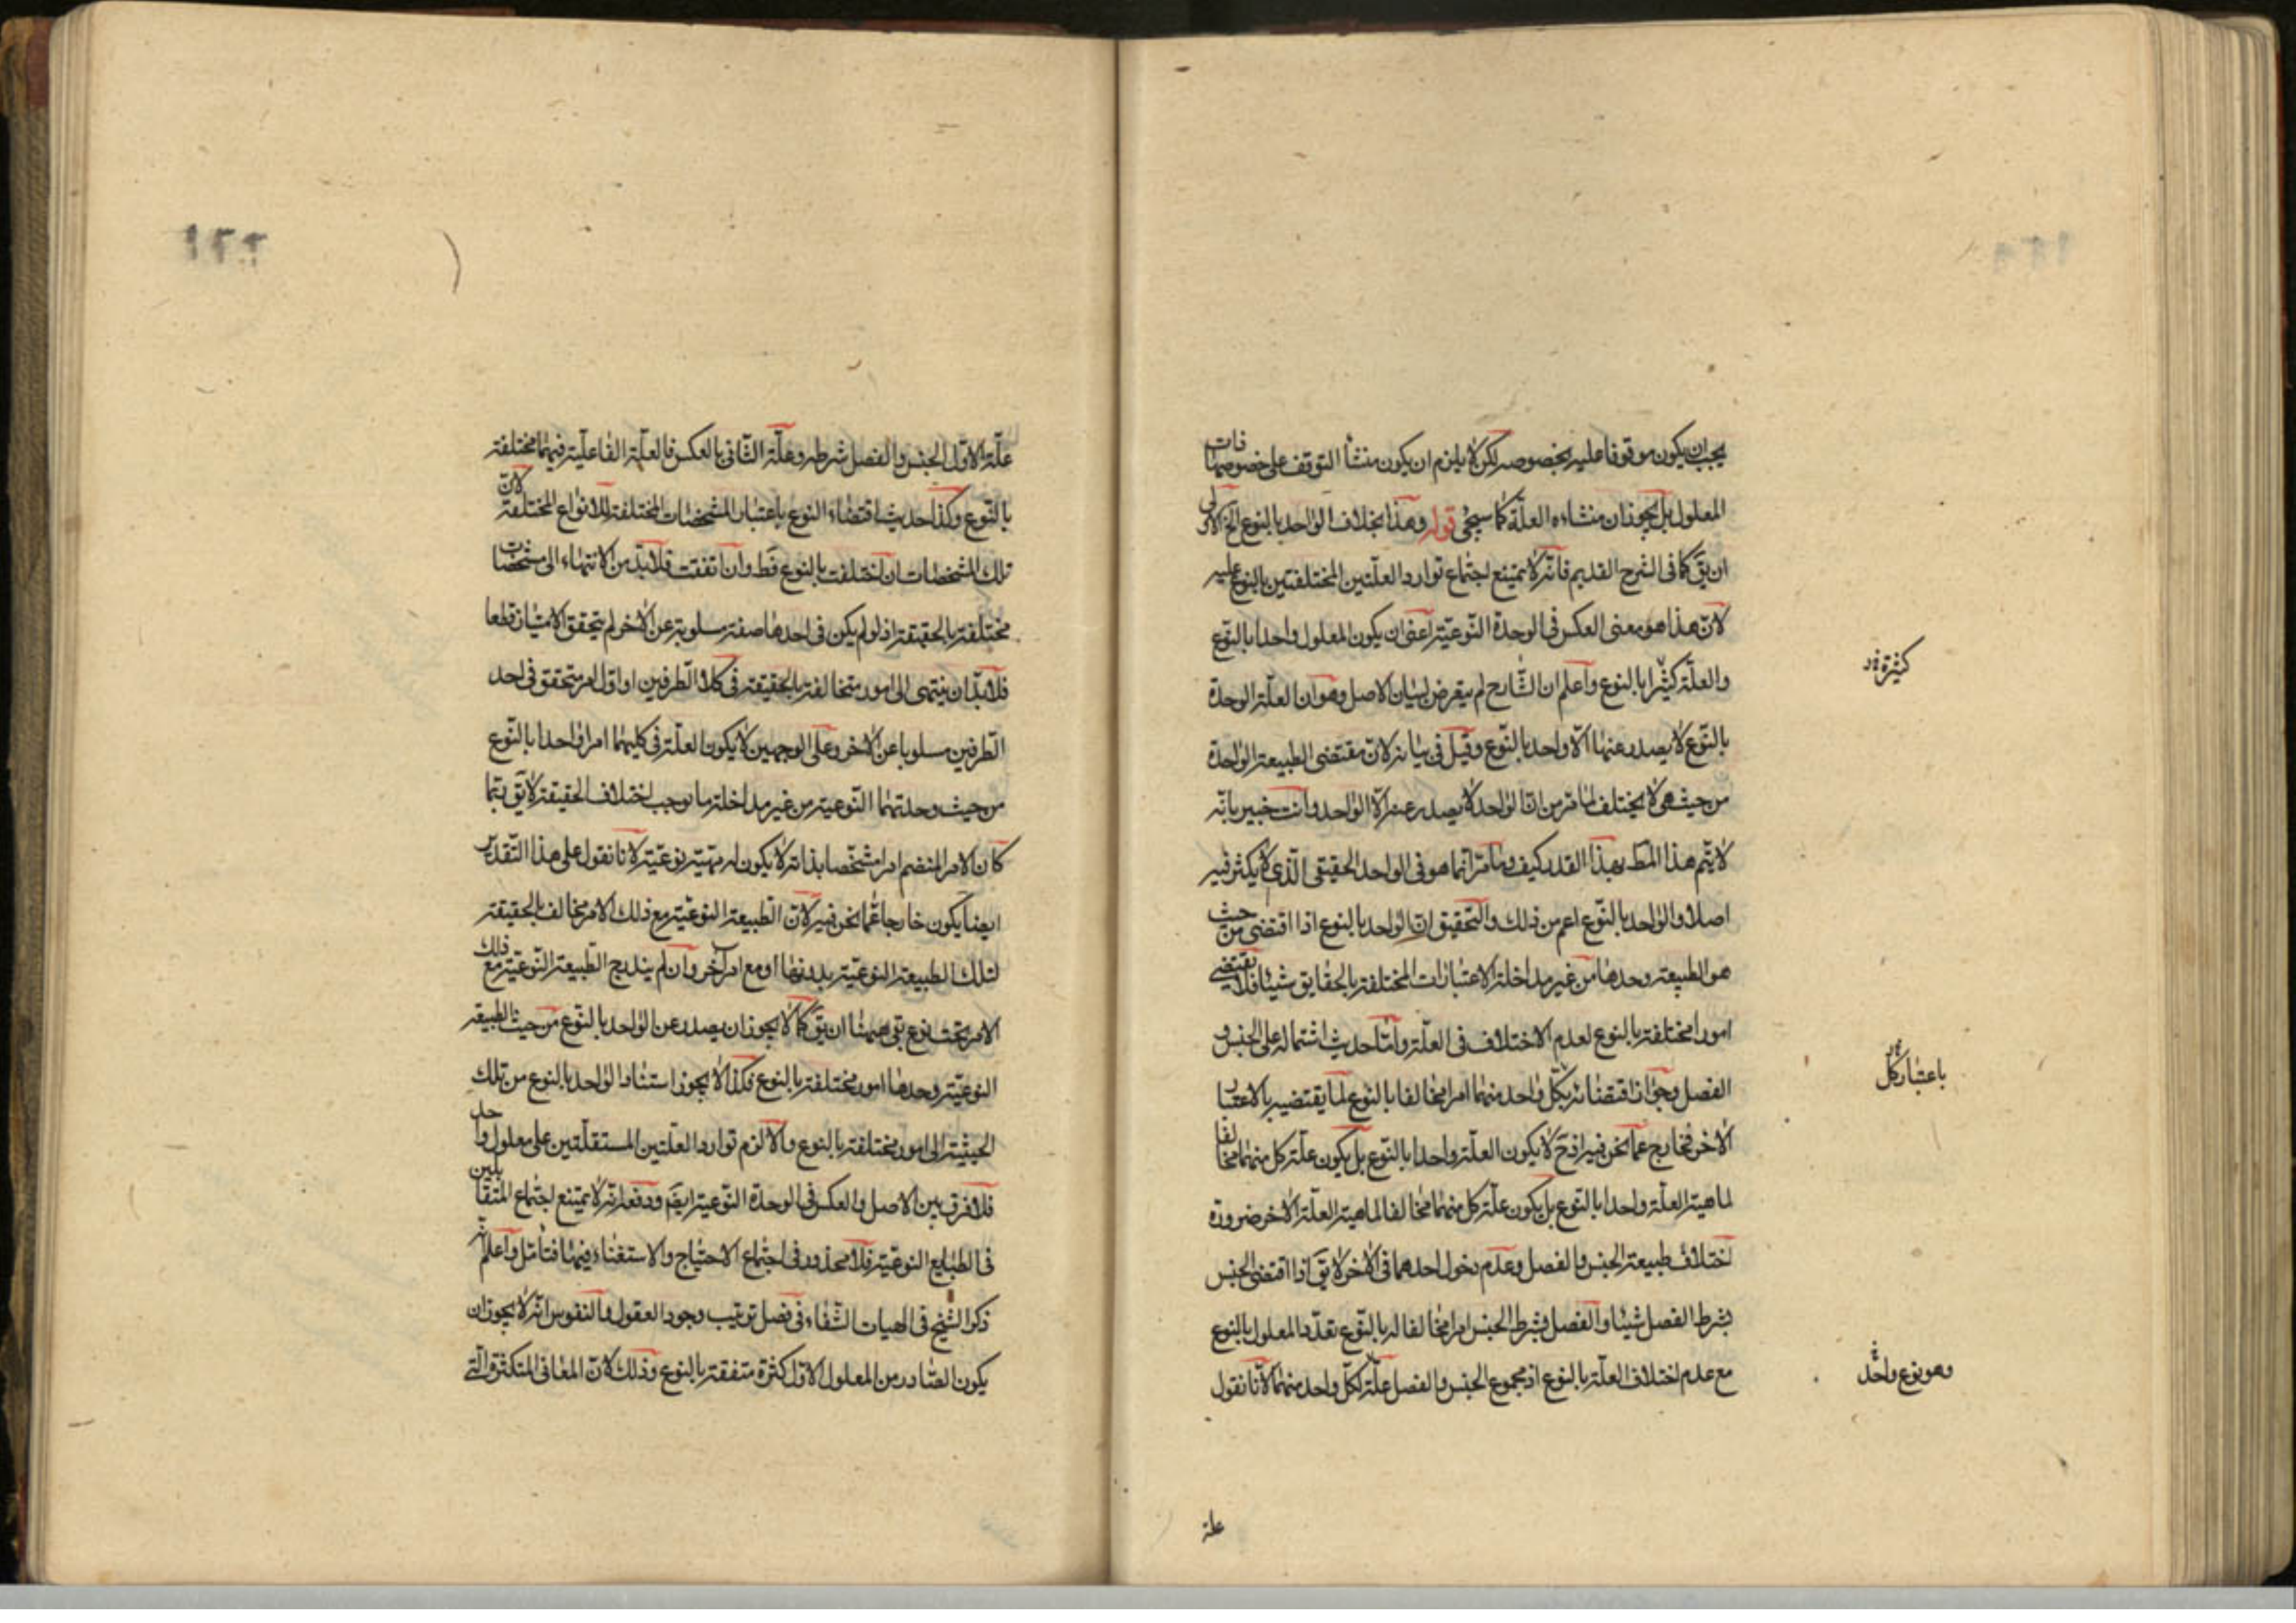 يجب ان يكون موقوفا عليه بخصوصه لكن لا يلزم ان يكون منشأ التوقف على خصوصها فات
المعلول بل يجوز ان منشاءه العلة كما سيجئ قوله وهذا بخلاف الواحد بالنوع الخ الاولى
ان يق كما فى الشرح القديم فانه لا يمتنع اجتماع توارد العلتين المختلفتين بالنوع عليه
لان هذا هو معنى العكس فى الوحدة النوعية اعنى ان يكون المعلول واحدا بالنوع
والعلة كثيرا بالنوع واعلم ان الشارح لم يتعرض لبيان الاصل وهو ان العلة الوحدة
كثيرة
بالنوع لا يصدر عنها الا واحد بالنوع وقيل فى بيانه لان مقتضى الطبيعة الواحدة
من حيث هى لا يختلف لما مر من ان الواحد لا يصدر عنه الا الواحد وانت خبير بانه
لا يتم هذا المط بهذا القدر كيف وما مر انما هو فى الواحد الحقيقى الذى لا يكثر فيه
اصلا والواحد بالنوع اعم من ذلك والتحقيق ان الواحد بالنوع اذا اقتضى من حيث
هو الطبيعة وحدها من غير مداخلة الاعتبارات المختلفة بالحقايق شيئا فلا يقتضى
امورا مختلفة بالنوع لعدم الاختلاف فى العلة واما حديث اشتماله على الجنس و
الفصل وجواز اقتضائه بكل واحد منهما امرا مخالفا بالنوع لما يقتضيه بالاعتبار
باعتبار كل
الاخر فخارج عما نحن فيه اذ ح لا يكون العلة واحدا بالنوع بل يكون علة كل منهما مخالفا
لماهية العلة واحدا بالنوع بل يكون علة كل منهما مخالفا لماهية العلة الاخر ضرورة
اختلاف طبيعة الجنس والفصل وعدم دخول احدهما فى الاخر لا يق اذا اقتضى الجنس
بشرط الفصل شيئا والفصل بشرط الجنس امرا مخالفا له بالنوع تعدد المعلول بالنوع
مع عدم اختلاف العلة بالنوع اذ مجموع الجنس والفصل علة لكل واحد منهما لانا نقول
وهو نوع واحد
علة
علة الاول الجنس والفصل شرطه وعلة الثانى بالعكس فالعلة الفاعلية فيهما مختلفة
بالنوع وكذا حديث اقتضاء النوع باعتبار المشخصات المختلفة للانواع المختلفة لان
تلك المشخصات ان اختلفت بالنوع فظ وان اتفقت فلا بد من الانتهاء الى مشخصات
مختلفة بالحقيقة اذ لو لم يكن فى احدها صفة مسلوبة عن الاخر لم يتحقق الامتياز قطعا
فلا بد ان ينتهى الى امور متخالفة بالحقيقة فى كلا الطرفين او اول امر متحقق فى احد
الطرفين مسلوبا عن الاخر وعلى الوجهين لا يكون العلة فى كليهما امرا واحدا بالنوع
من حيث وحدتهما النوعية من غير مداخلة ما توجب اختلاف الحقيقة لا يق ربما
كان الامر المنضم امرا مشخصا بذاته لا يكون له مهية نوعية لانا نقول على هذا التقدير
ايضا يكون خارجا عما نحن فيه لان الطبيعة النوعية مع ذلك الامر مخالف بالحقيقة
لتلك الطبيعة النوعية بدونها او مع امر اخر وان لم يندرج الطبيعة النوعية مع ذلك
الامر تحت نوع بقى ههنا ان يق كما لا يجوز ان يصدر عن الواحد بالنوع من حيث الطبيعة
النوعية وحدها امور مختلفة بالنوع فكذا لا يجوز استناد الواحد بالنوع من تلك
الحيثية الى امور مختلفة بالنوع والا لزم توارد العلتين المستقلتين على معلول واحد
فلا فرق بين الاصل والعكس فى الوحدة النوعية ايضا ودفعه انه لا يمتنع اجتماع المتقابلين
فى الطبايع النوعية فلا محذور فى اجتماع الاحتياج والاستغناء فيهما فتأمل واعلم انه
ذكر الشيخ فى الهيات الشفاء فى فصل ترتيب وجود العقول والنفوس انه لا يجوز ان
يكون الصادر من المعلول الاول كثرة متفقة بالنوع وذلك لان المعانى المتكثرة التى